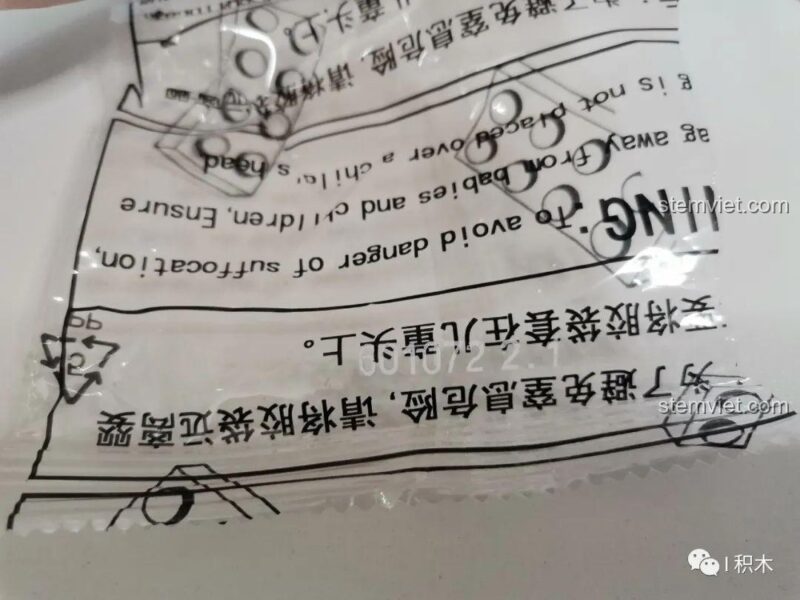 为了避免窒息危险，请将胶袋远离婴
要将胶袋套在儿童头上。
PP
NG: To avoid danger of suffocation,
ag away from babies and children, Ensure
g is not placed over a child's head
为了避免窒息危险，请将胶
儿童头上。
stemviet.com
stemviet.com
I 积木